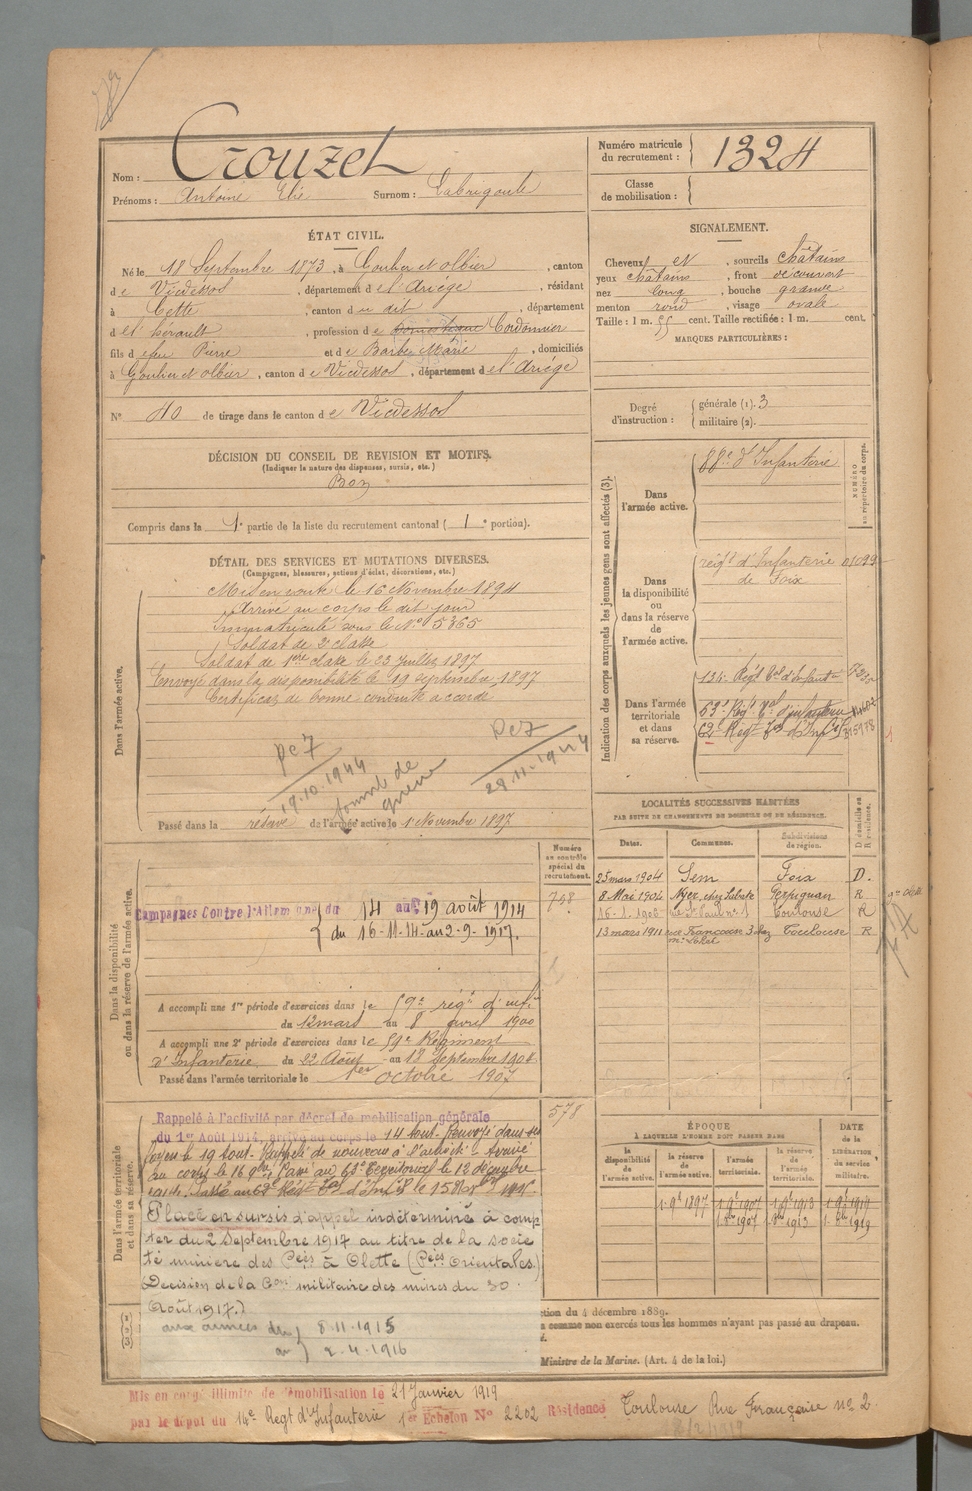 Nom : Crouzet
Prénoms : Antoine Elie Surnom : Labrigoule
Numéro matricule du recrutement : 1324
Classe de mobilisation :
ÉTAT CIVIL.
Né le 18 Septembre 1873, à Goulier et Olbier, canton
de Vicdessos, département de l'Ariège, résidant
à Cette, canton du dit, département
de l'hérault, profession de domestique Cordonnier
fils de feu Pierre et de Barbe Marie, domiciliés
à Goulier et Olbier, canton de Vicdessos, département de l'Ariége
N° 40 de tirage dans le canton de Vicdessos
SIGNALEMENT.
Cheveux et, sourcils châtains
yeux châtains, front découvert
nez long, bouche grande
menton rond, visage ovale
Taille : 1 m. 55 cent. Taille rectifiée : 1 m. cent.
MARQUES PARTICULIÈRES :
Degré d'instruction : générale (1). 3
militaire (2).
DÉCISION DU CONSEIL DE REVISION ET MOTIFS.
(Indiquer la nature des dispenses, sursis, etc.)
Bon
Compris dans la 1e partie de la liste du recrutement cantonal (1e portion).
DÉTAIL DES SERVICES ET MUTATIONS DIVERSES.
(Campagnes, blessures, actions d'éclat, décorations, etc.)
Dans l'armée active.
Mis en route le 16 Novembre 1894
Arrivé au corps le dit jour
Immatriculé sous le N° 5365
Soldat de 2e classe
Soldat de 1ère classe le 23 juillet 1897
Envoyé dans la disponibilité le 19 septembre 1897
Certificat de bonne conduite accordé
pc 7
19.10.1944
pc 7
28.11.1944
Passé dans la réserve de l'armée active le 1 Novembre 1897
Indication des corps auxquels les jeunes gens sont affectés (3).
NUMÉRO au répertoire du corps.
Dans l'armée active.
88e d'Infanterie
Dans la disponibilité ou dans la réserve de l'armée active.
régt d'Infanterie de Foix
Dans l'armée territoriale et dans sa réserve.
134e Régt Tal d'Infant
63e Régt Tal d'infanterie
62e Régt Tal d'Infie
LOCALITÉS SUCCESSIVES HABITÉES
PAR SUITE DE CHANGEMENTS DE DOMICILE OU DE RÉSIDENCE.
Dates. Communes. Subdivisions de région. D domicile ou R résidence.
25 mars 1904 Sem Foix D.
8 Mai 1904 Nyer, chez Labate Perpignan R
16-1-1908 rue St Paul n° 1 Toulouse R
13 mars 1911 rue Françoise 3 chez Toulouse R
Dans la disponibilité ou dans la réserve de l'armée active.
Numéro au contrôle spécial du recrutement.
748
Campagnes Contre l'Allemagne du 14 au 19 août 1914
du 16-11-14 au 2-9-1917.
A accompli une 1re période d'exercices dans le 59e régt d'infie
du 12 mars au 8 avril 1900
A accompli une 2e période d'exercices dans le 59e Régiment
d'Infanterie du 22 Août au 18 Septembre 1904
Passé dans l'armée territoriale le 1er octobre 1907
578
Dans l'armée territoriale et dans sa réserve.
Rappelé à l'activité par décret de mobilisation générale
du 1er Août 1914, arrivé au corps le 14 août. Renvoyé dans ses
foyers le 19 août. Rappelé de nouveau à l'activité. Arrivé
au corps le 16 9bre. Passé au 63e Territorial le 12 décembre
Placé en sursis d'appel indéterminé à comp
ter du 2 Septembre 1917 au titre de la socié
té minière des Pées à Olette (Pées Orientales.)
Décision de la Con militaire des mines du 30
Août 1917.)
aux armées du 8.11.1915
au 2.4.1916
ÉPOQUE
À LAQUELLE L'HOMME DOIT PASSER DANS
la disponibilité de l'armée active. la réserve de l'armée active. l'armée territoriale. la réserve de l'armée territoriale. DATE de la LIBÉRATION du service militaire.
1.9e 1897 1.9e 1907 1.9e 1913 1.9e 1919
1.8bre 1907 1.8bre 1913 1.8bre 1919
ction du 4 décembre 1889.
a comme non exercés tous les hommes n'ayant pas passé au drapeau.
Ministre de la Marine. (Art. 4 de la loi.)
Mis en congé illimité de démobilisation le 21 Janvier 1919
par le dépôt du 14e Regt d'Infanterie 1er Echelon N° 2202 Résidence Toulouse Rue Française no 2.